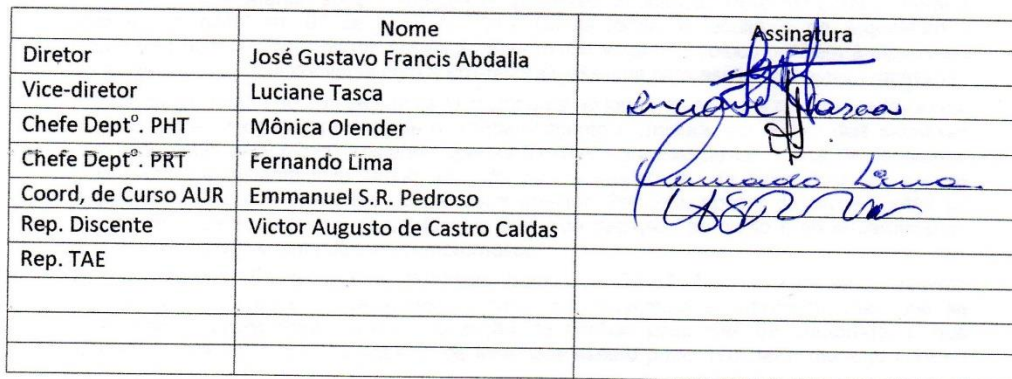 Nome Assinatura
Diretor José Gustavo Francis Abdalla
Vice-diretor Luciane Tasca Luciane Tasca
Chefe Deptº. PHT Mônica Olender
Chefe Deptº. PRT Fernando Lima Fernando Lima.
Coord, de Curso AUR Emmanuel S.R. Pedroso
Rep. Discente Victor Augusto de Castro Caldas
Rep. TAE